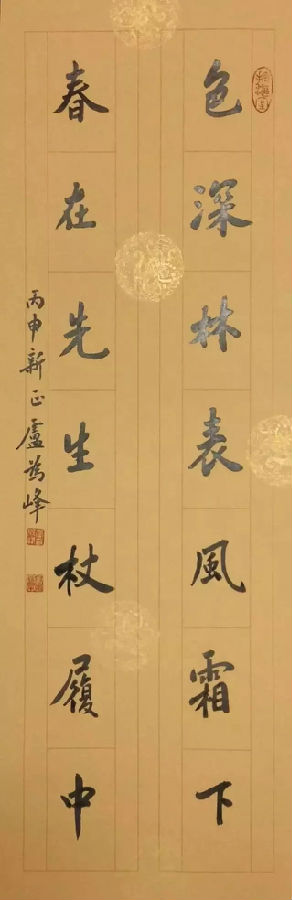 色深林表風霜下
春在先生杖履中
丙申新正盧為峰